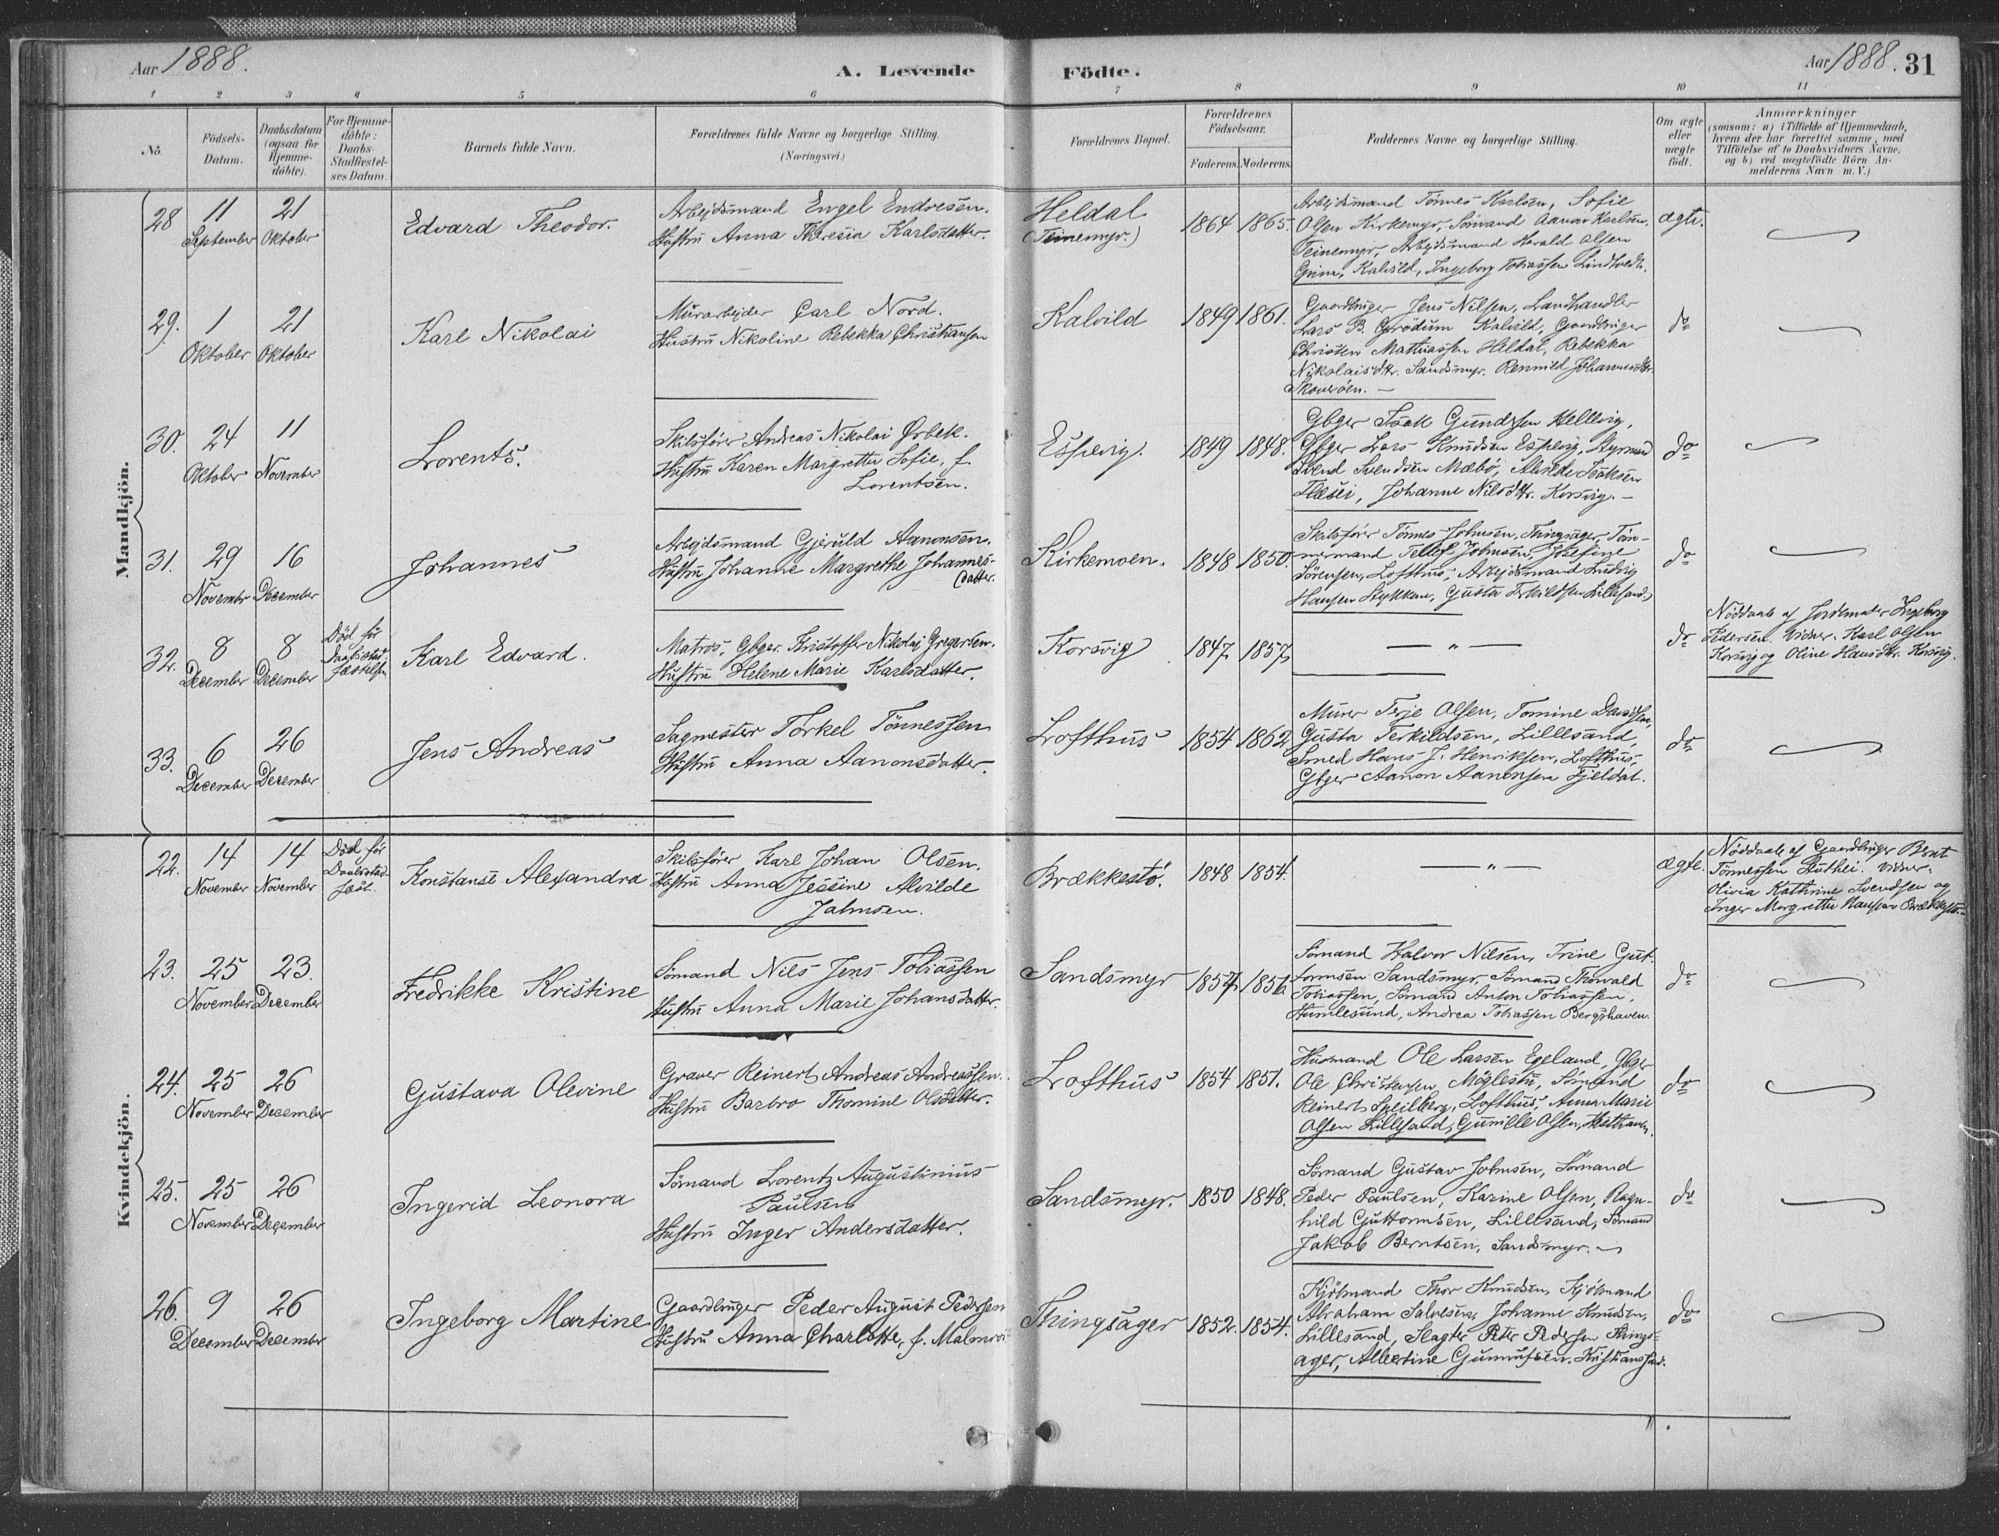 Aar 1888.
A. Levende Födte.
Aar 1888. 31
1 2 3 4 5 6 7 8 9 10 11
No.
Födsels-Datum.
Daabsdatum (ogsaa for Hjemme-döbte).
For Hjemme-döbte: Daabs-Stadfæstel-ses Datum.
Barnets fulde Navn.
Forældrenes fulde Navne og borgerlige Stilling.
(Næringsvei.)
Forældrenes Bopæl.
Forældrenes Födselsaar.
Faderens. Moderens.
Faddernes Navne og borgerlige Stilling.
Om ægte eller uægte födt.
Anmærkninger
(saasom: a) i Tilfælde af Hjemmedaab,
hvem der har forrettet samme, med
Tilföielse af to Daabsvidners Navne,
og b) ved uægtefödte Börn An-
melderens Navn m. V.)
Mandkjön.
28 11 September 21 Oktober
Edvard Theodor.
Arbejdsmand Engel Endresen.
Hustru Anna Theresia Karlsdatter.
Heldal
(Teinemyr.)
1864 1865.
Arbejdsmand Tönnes Karlsen, Sofie
Olsen Kirkemyr, Sömand Aanav Karlsen,
Teinemyr, Arbejdsmand Harald Olsen
Grim, Kalvild, Ingeborg Tobiassen Lindtvedt.
ægte.
29. 1 Oktober 21 Oktober
Karl Nikolai
Murarbejder Carl Nord.
Hustru Nikoline Rebekka Christiansen
Kalvild
1849 1861.
Gaardbruger Jens Nilsen, Landhandler
Lars B. Grödum Kalvild, Gaardbruger
Christen Mathiassen Heldal, Rebekka
Nikolaisdtr. Sandsmyr. Rennild Johannesdtr.
Skoveröen. —
do
30. 24 Oktober 11 November
Lorents.
Skibsförer Andreas Nikolai Örbek.
Hustru Karen Margrethe Sofie, f.
Lorentsen.
Espevig.
1849 1848.
Gbger Isak Gundersen Hellevig,
Gbger Lars Knudsen Espevig, Styrmand
Svend Svendsen Mæbö, Alvilde Isaksen
Flæsei, Johanne Nilsdtr. Korsvig. —
do
31. 29 November 16 December
Johannes
Arbejdsmand Gjeruld Aanonsen.
Hustru Johanne Margrethe Johannes-
datter.
Kirkemoen.
1848 1850.
Skibsförer Tönnes Johnsen, Thingsager Töm-
mermand Tellef Johnsen, Josefine
Sörensen, Lofthus, Arbejdsmand Ludvig
Hansen Stykken, Gusta Terkildsen Lillesand.
do
32. 8 December 8 December
Död för
Daabsstad
fæstelsen
Karl Edvard.
Matros, Gbger. Kristoffer Nikolaj Gregersen.
Hustru Helene Marie Karlsdatter.
Korsvig
1847 1857
— " —
do
Nöddaab af Jordemoder Ingeborg
Pedersen. Vidner. Karl Olsen
Korsvig og Oline Hansdtr. Korsvig.
33. 6 December 26 December
Jens Andreas
Sagmester Torkel Tönnessen
Hustru Anna Aanonsdatter.
Lofthus
1854 1862
Murer Terje Olsen, Tomine Davidsen,
Gusta Terkildsen, Lillesand,
Smed Hans J. Henriksen, Lofthus,
Gbger Aanon Aanonsen Fjeldal.
do
Kvindekjön.
22. 14 November 14 November
Död för
Daabsstad
fæst.
Konstanse Alexandra
Skibsförer Karl Johan Olsen.
Hustru Anna Jessine Alvilde
Jahnsen.
Brækkestö.
1848 1854.
— " —
ægte.
Nöddaab af Gaardbruger Bent
Tönnessen Vidner.
Olivia Kathrine Svendsen og
Inger Margrethe Hansen Brækkestö.
23. 25 November 23. December
Fredrikke Kristine
Sömand Nils Jens Tobiassen
Hustru Anna Marie Johansdatter.
Sandsmyr
1857 1856
Sömand Halvor Nilsen, Trine Gut-
tormsen Sandsmyr, Sömand Thorvald
Tobiassen, Sömand Anton Tobiassen,
Humlesund, Andrea Tobiassen Bergshaven.
do
24. 25 November 26 December
Gustava Olevine
Graver Reinert Andreas Andreassen.
Hustru Barbro Thomine Olsdatter.
Lofthus
1854 1851.
Husmand Ole Larsen Egeland, Gbger
Ole Christensen, Möglestu, Sömand
Reinert Speilberg, Lofthus, Anna Marie
Olsen Lillesand, Gunille Olsen,
do
25. 25 November 26 December
Ingerid Leonora
Sömand Lorentz Augustinius
Paulsen
Hustru Inger Andersdatter.
Sandsmyr.
1850 1848.
Sömand Gustav Johnsen, Sömand
Peder Paulsen, Karine Olsen, Ragn-
hild Guttormsen, Lillesand, Sömand
Jakob Berntsen, Sandsmyr.
do
26. 9 December 26 December
Ingeborg Martine
Gaardbruger Peder August Pedersen
Hustru Anna Charlotte, f.
Thingsager
1852. 1854.
Kjöbmand Thor Knudsen, Kjöbmand
Abraham Salvesen, Johanne Knudsen,
Lillesand, Slagter Peter Pedersen Things-
ager, Albertine Gunnufsen. Kristianssand.
do